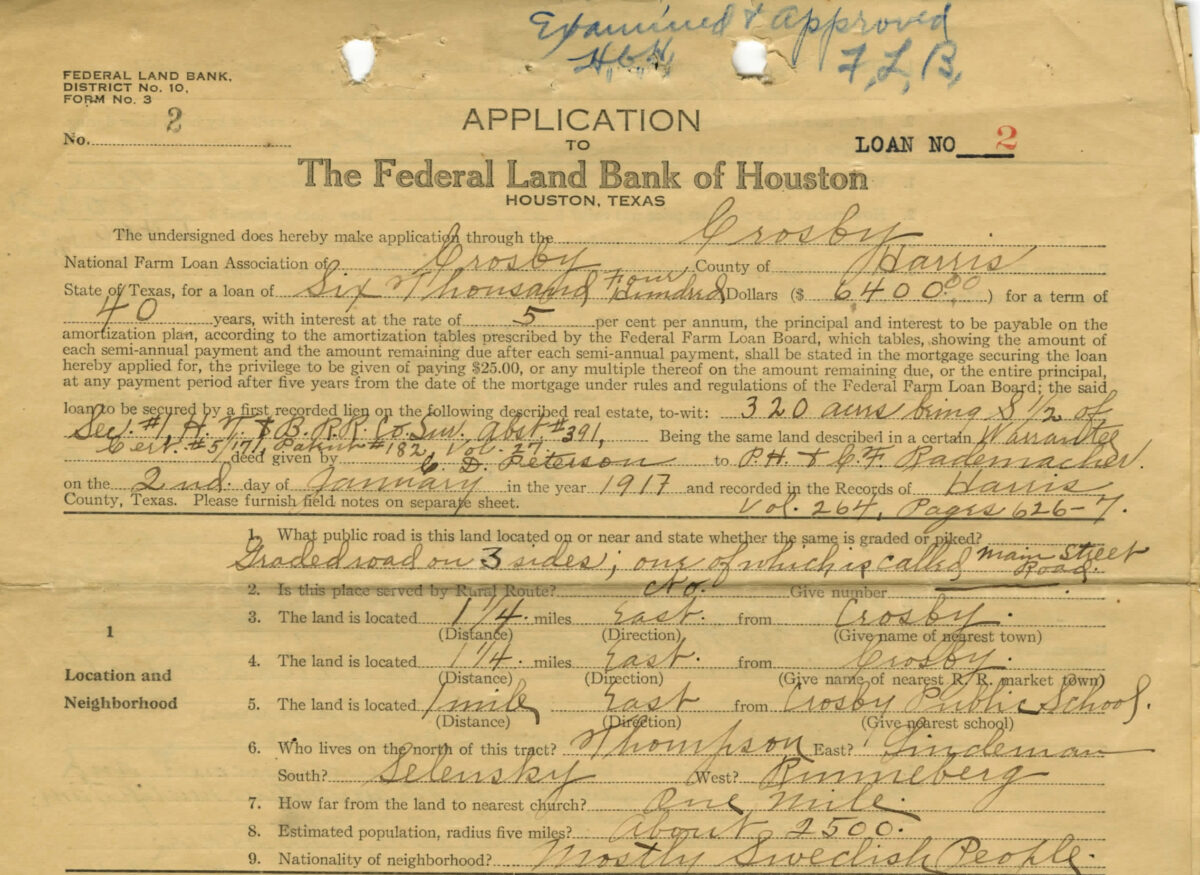 Examined & Approved
H.C.H. F.L.B.
FEDERAL LAND BANK,
DISTRICT No. 10,
FORM No. 3
No. 2
APPLICATION
TO
LOAN NO 2
The Federal Land Bank of Houston
HOUSTON, TEXAS
The undersigned does hereby make application through the Crosby
National Farm Loan Association of Crosby County of Harris
State of Texas, for a loan of Six Thousand Four Hundred Dollars ($ 6400.00 ) for a term of
40 years, with interest at the rate of 5 per cent per annum, the principal and interest to be payable on the
amortization plan, according to the amortization tables prescribed by the Federal Farm Loan Board, which tables, showing the amount of
each semi-annual payment and the amount remaining due after each semi-annual payment, shall be stated in the mortgage securing the loan
hereby applied for, the privilege to be given of paying $25.00, or any multiple thereof on the amount remaining due, or the entire principal,
at any payment period after five years from the date of the mortgage under rules and regulations of the Federal Farm Loan Board; the said
loan to be secured by a first recorded lien on the following described real estate, to-wit: 320 acres being S 1/2 of
Sec. #1, H. T. & B. R.R. Co. Sur. Abst # 391, Being the same land described in a certain Warrantee
Cert. #5/177, Patent #182, Vol. 27. deed given by C. D. Peterson to P.H. & C F Rademacher.
on the 2nd. day of January in the year 1917 and recorded in the Records of Harris
County, Texas. Please furnish field notes on separate sheet. Vol. 264, Pages 626-7.
1. What public road is this land located on or near and state whether the same is graded or piked?
Graded road on 3 sides; one of which is called Main Street Road.
2. Is this place served by Rural Route? No. Give number
3. The land is located 1 1/4 miles East from Crosby.
(Distance) (Direction) (Give name of nearest town)
1
4. The land is located 1 1/4 miles East. from Crosby.
(Distance) (Direction) (Give name of nearest R. R. market town)
Location and
Neighborhood
5. The land is located 1 mile East from Crosby Public School.
(Distance) (Direction) (Give nearest school)
6. Who lives on the north of this tract? Thompson East? Lindeman
South? Selensky West? Rinneberg
7. How far from the land to nearest church? One Mile.
8. Estimated population, radius five miles? About 2500.
9. Nationality of neighborhood? Mostly Swedish People.